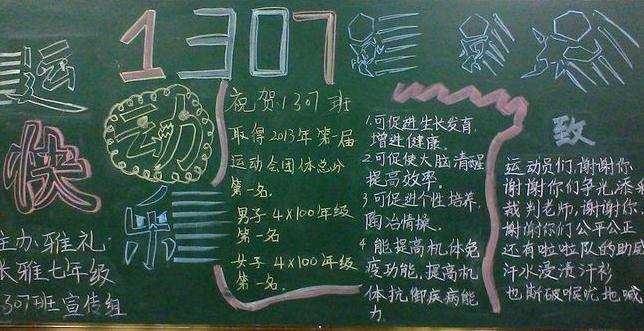 1307
运
动
快
乐
主办雅礼
长雅七年级
1307班宣传组
祝贺1307班
取得2013年第一届
运动会团体总分
第一名.
男子4×100年级
第一名
女子4×100年级
第一名.
1.可促进生长发育,
增进健康.
2.可促使大脑清醒
提高效率.
3.可促进个性培养,
陶冶情操.
4.能提高机体免
疫功能,提高机
体抗御疾病能
力.
致
运动员们,谢谢你
谢谢你们争光,添
裁判老师,谢谢你
谢谢你们公平公正
还有啦啦队的助
汗水浸渍汗衫
也撕破喉咙地喊